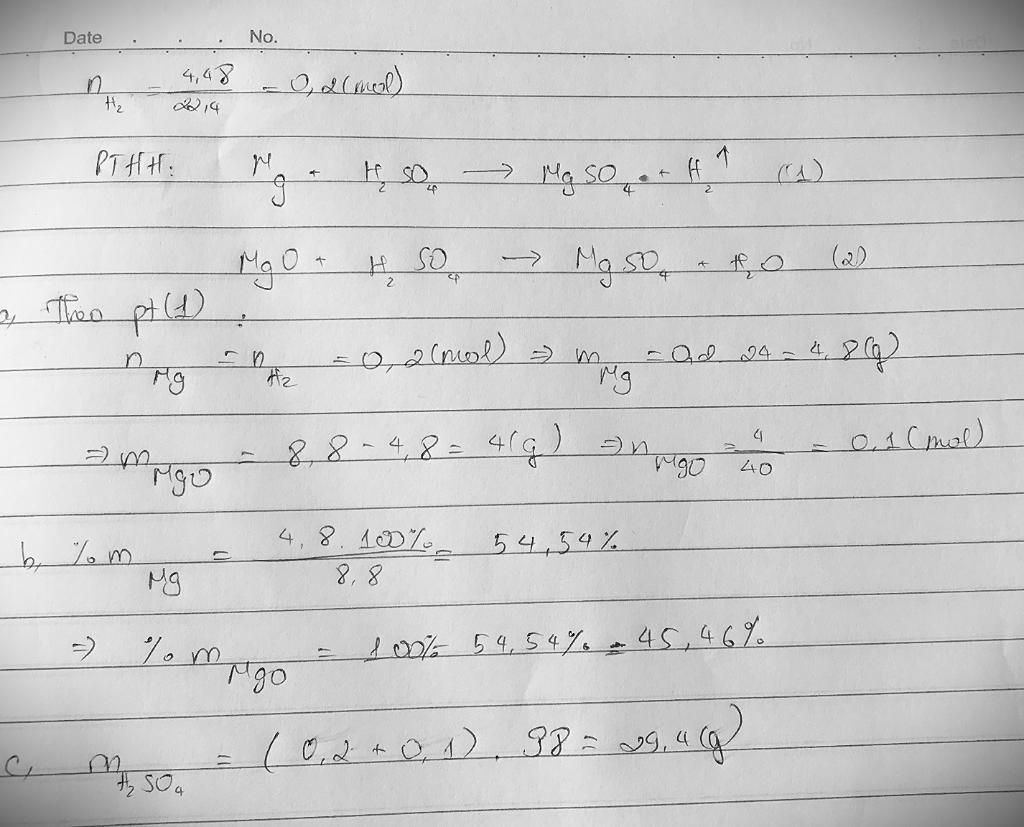 Date . . . No.
n H₂ = 4,48/22,4 = 0,2 (mol)
PTHH: Mg + H₂SO₄ → MgSO₄ + H₂↑ (1)
MgO + H₂SO₄ → MgSO₄ + H₂O (2)
a, Theo pt (1) :
n Mg = n H₂ = 0,2 (mol) ⇒ m Mg = 0,2 . 24 = 4,8 (g)
⇒ m MgO = 8,8 - 4,8 = 4 (g) ⇒ n MgO = 4/40 = 0,1 (mol)
b, % m Mg = 4,8.100%/8,8 = 54,54%
⇒ % m MgO = 100% - 54,54% = 45,46%
c, m H₂SO₄ = (0,2 + 0,1) . 98 = 29,4 (g)